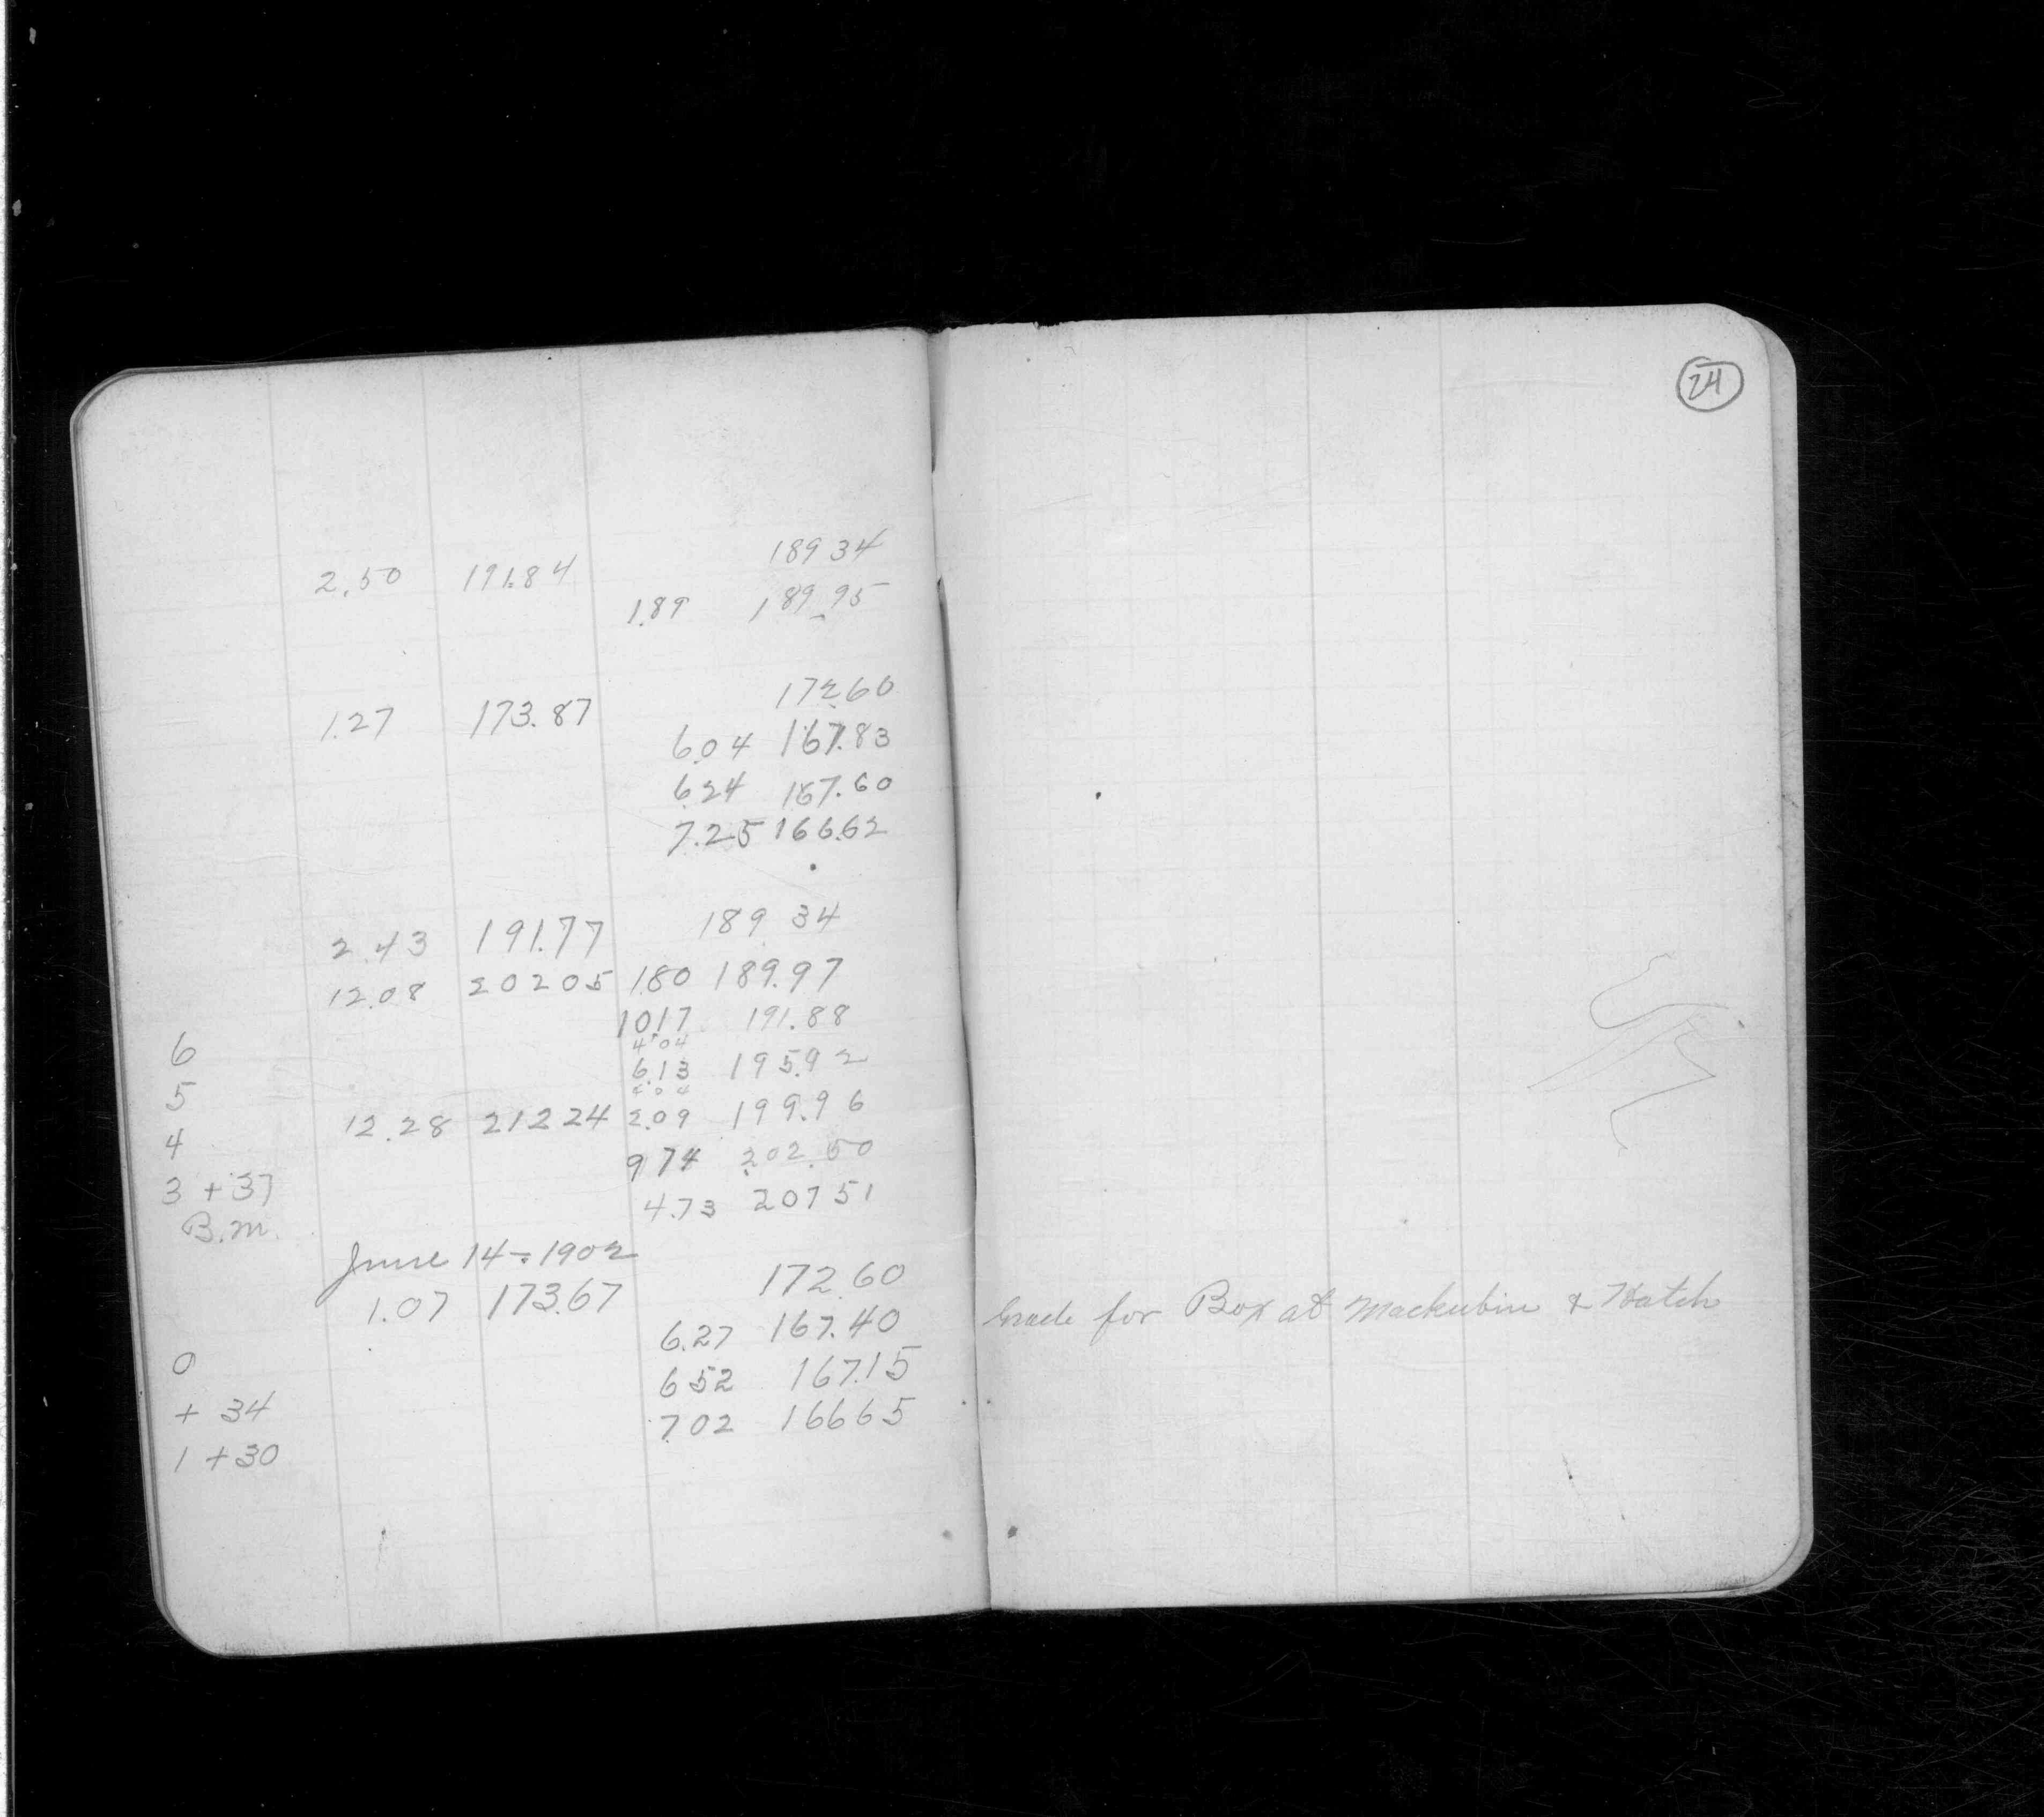 24
189 34
2.50 191.84
1.89 189.95
172.60
1.27 173.87
6.04 167.83
6.24 167.60
7.25 166.62
189 34
2.43 191.77
12.08 202 05 1.80 189.97
6 10.17 191.88
4.04
5 6.13 195.92
4 04
4 12.28 212 24 2.09 199.96
3 + 37 9 74 202.50
B.M. 4.73 207 51
June 14-1902
172.60
1.07 173.67
0 6.27 167.40 Grade for Box at Mackubin & Hatch
+ 34 6 52 167.15
1 + 30 7.02 166 65